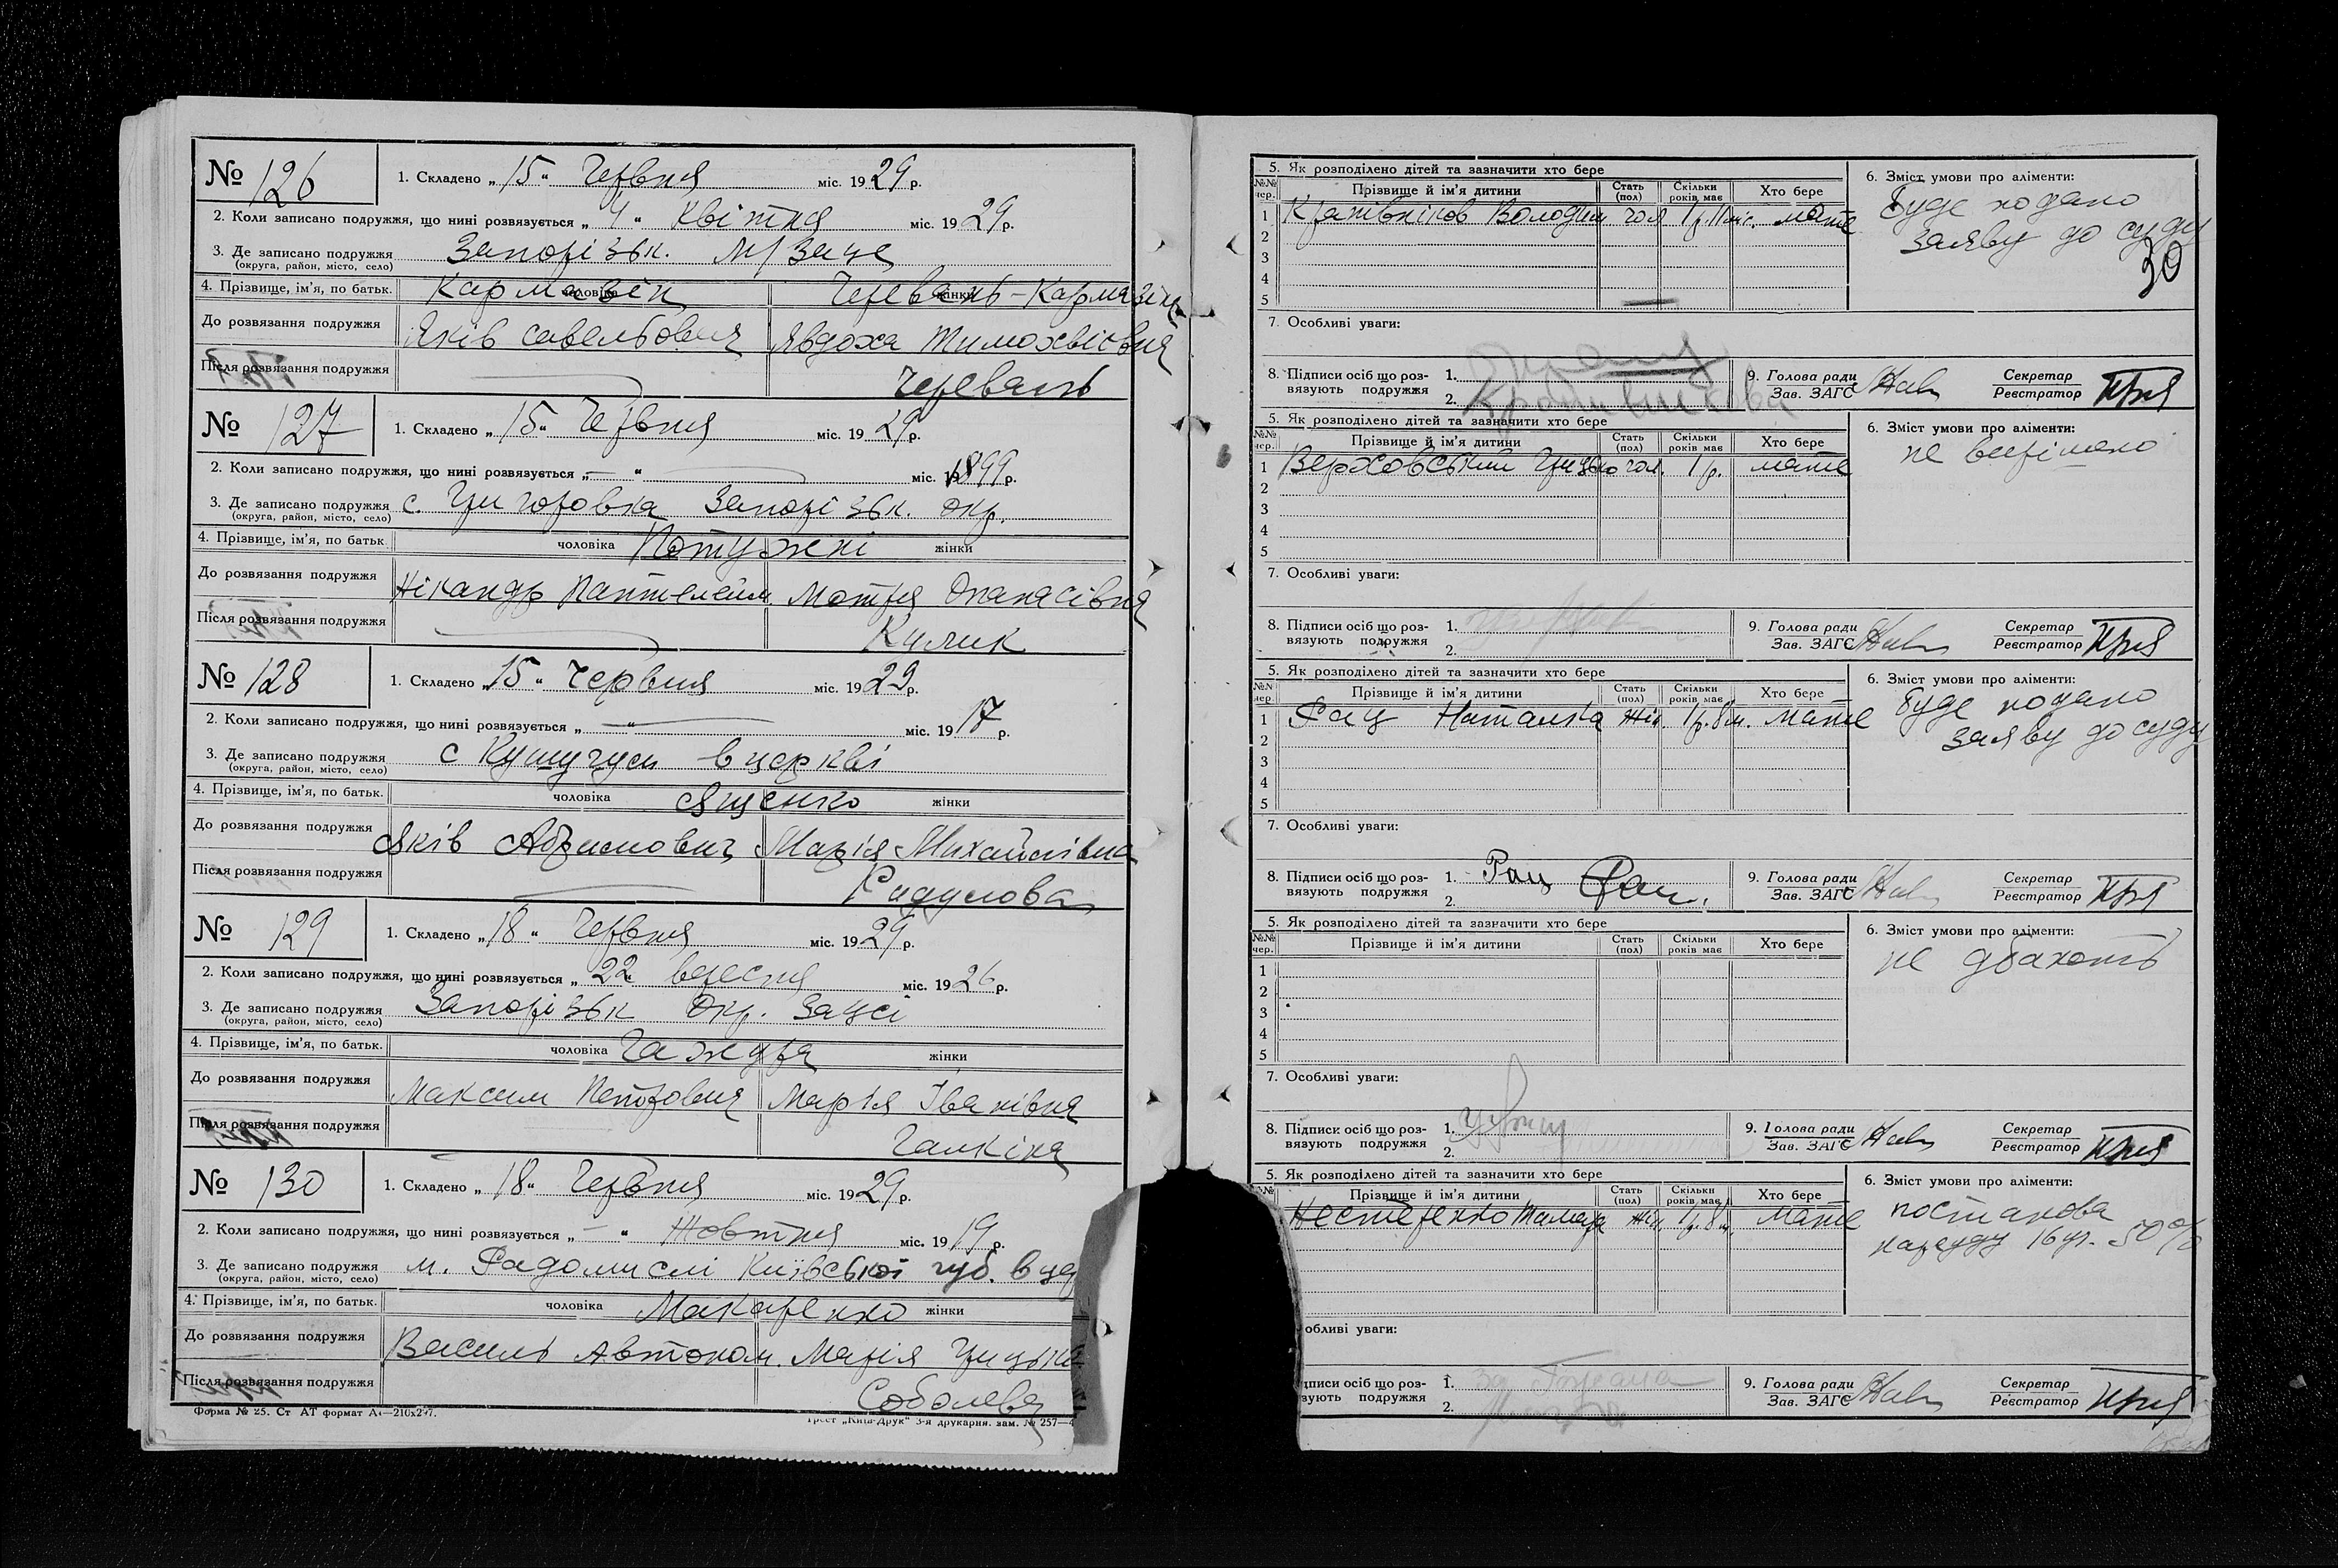 № 126
1. Складено „15“ Червня міс. 1929 р.
2. Коли записано подружжя, що нині розвязується „4“ Квітня міс. 1929 р.
3. Де записано подружжя Запорізьк. М/Загс
(округа, район, місто, село)
4. Прізвище, ім’я, по батьк. чоловіка Кармазін жінки Черевань-Кармазін
До розвязання подружжя Яків Савельович Явдоха Тимохвієвна
Після розвязання подружжя Черевань
№ 127
1. Складено „15“ Червня міс. 1929 р.
2. Коли записано подружжя, що нині розвязується „—“ міс. 1899 р.
3. Де записано подружжя с. Григоровка Запорізьк. окр.
(округа, район, місто, село)
4. Прізвище, ім’я, по батьк. чоловіка Потужні жінки
До розвязання подружжя Нікандр Пантелейм. Мотря Опанасівна
Після розвязання подружжя Кулик
№ 128
1. Складено „15“ Червня міс. 1929 р.
2. Коли записано подружжя, що нині розвязується „—“ міс. 1917 р.
3. Де записано подружжя с Кушугум в церкві
(округа, район, місто, село)
4. Прізвище, ім’я, по батьк. чоловіка Ященко жінки
До розвязання подружжя Яків Абрамович Марія Михайлівна
Після розвязання подружжя Радулова
№ 129
1. Складено „18“ Червня міс. 1929 р.
2. Коли записано подружжя, що нині розвязується „22“ вересня міс. 1926 р.
3. Де записано подружжя Запорізьк Окр. Загсі
(округа, район, місто, село)
4. Прізвище, ім’я, по батьк. чоловіка Гажура жінки
До розвязання подружжя Максим Петрович Марія Іванівна
Після розвязання подружжя Галкіна
№ 130
1. Складено „18“ Червня міс. 1929 р.
2. Коли записано подружжя, що нині розвязується „—“ Жовтня міс. 1919 р.
3. Де записано подружжя м. Радомислі Київської губ. в цер
(округа, район, місто, село)
4. Прізвище, ім’я, по батьк. чоловіка Макаренко жінки
До розвязання подружжя Василь Автоном. Марія Грицьк.
Після розвязання подружжя Соболева
Форма № 25. Ст АТ формат А4—210х297.
Трест „Київ-Друк“ 3-я друкарня. зам. № 257—4
5. Як розподілено дітей та зазначити хто бере
6. Зміст умови про аліменти:
№№ чер. Прізвище й ім’я дитини Стать (пол) Скільки років має Хто бере
1 Крапівніков Володим чол 1 р. 11 міс. мате
буде подано
заяву до суду
30
2
3
4
5
7. Особливі уваги:
8. Підписи осіб що розвязують подружжя 1.
2. Крапивникова
9. Голова ради
Зав. ЗАГС
Секретар
Реєстратор
5. Як розподілено дітей та зазначити хто бере
6. Зміст умови про аліменти:
№№ чер. Прізвище й ім’я дитини Стать (пол) Скільки років має Хто бере
1 Верховський Грицько чол. 1 р. мате
не вирішено
2
3
4
5
7. Особливі уваги:
8. Підписи осіб що розвязують подружжя 1.
2.
9. Голова ради
Зав. ЗАГС
Секретар
Реєстратор
5. Як розподілено дітей та зазначити хто бере
6. Зміст умови про аліменти:
№№ чер Прізвище й ім’я дитини Стать (пол) Скільки років має Хто бере
1 Рац Наталка жін. 1 р. 8 м. мате
буде подано
заяву до суду
2
3
4
5
7. Особливі уваги:
8. Підписи осіб що розвязують подружжя 1. Рац Рац.
2.
9. Голова ради
Зав. ЗАГС
Секретар
Реєстратор
5. Як розподілено дітей та зазначити хто бере
6. Зміст умови про аліменти:
№№ чер. Прізвище й ім’я дитини Стать (пол) Скільки років має Хто бере
не дбають
1
2
3
4
5
7. Особливі уваги:
8. Підписи осіб що розвязують подружжя 1.
2.
9. Голова ради
Зав. ЗАГС
Секретар
Реєстратор
5. Як розподілено дітей та зазначити хто бере
6. Зміст умови про аліменти:
Прізвище й ім’я дитини Стать (пол) Скільки років має Хто бере
Нестеренко Тамара жін. 1 р. 8 м. мате
постанова
нарсуду 50%
обливі уваги:
дписи осіб що розвязують подружжя 1.
2.
9. Голова ради
Зав. ЗАГС
Секретар
Реєстратор